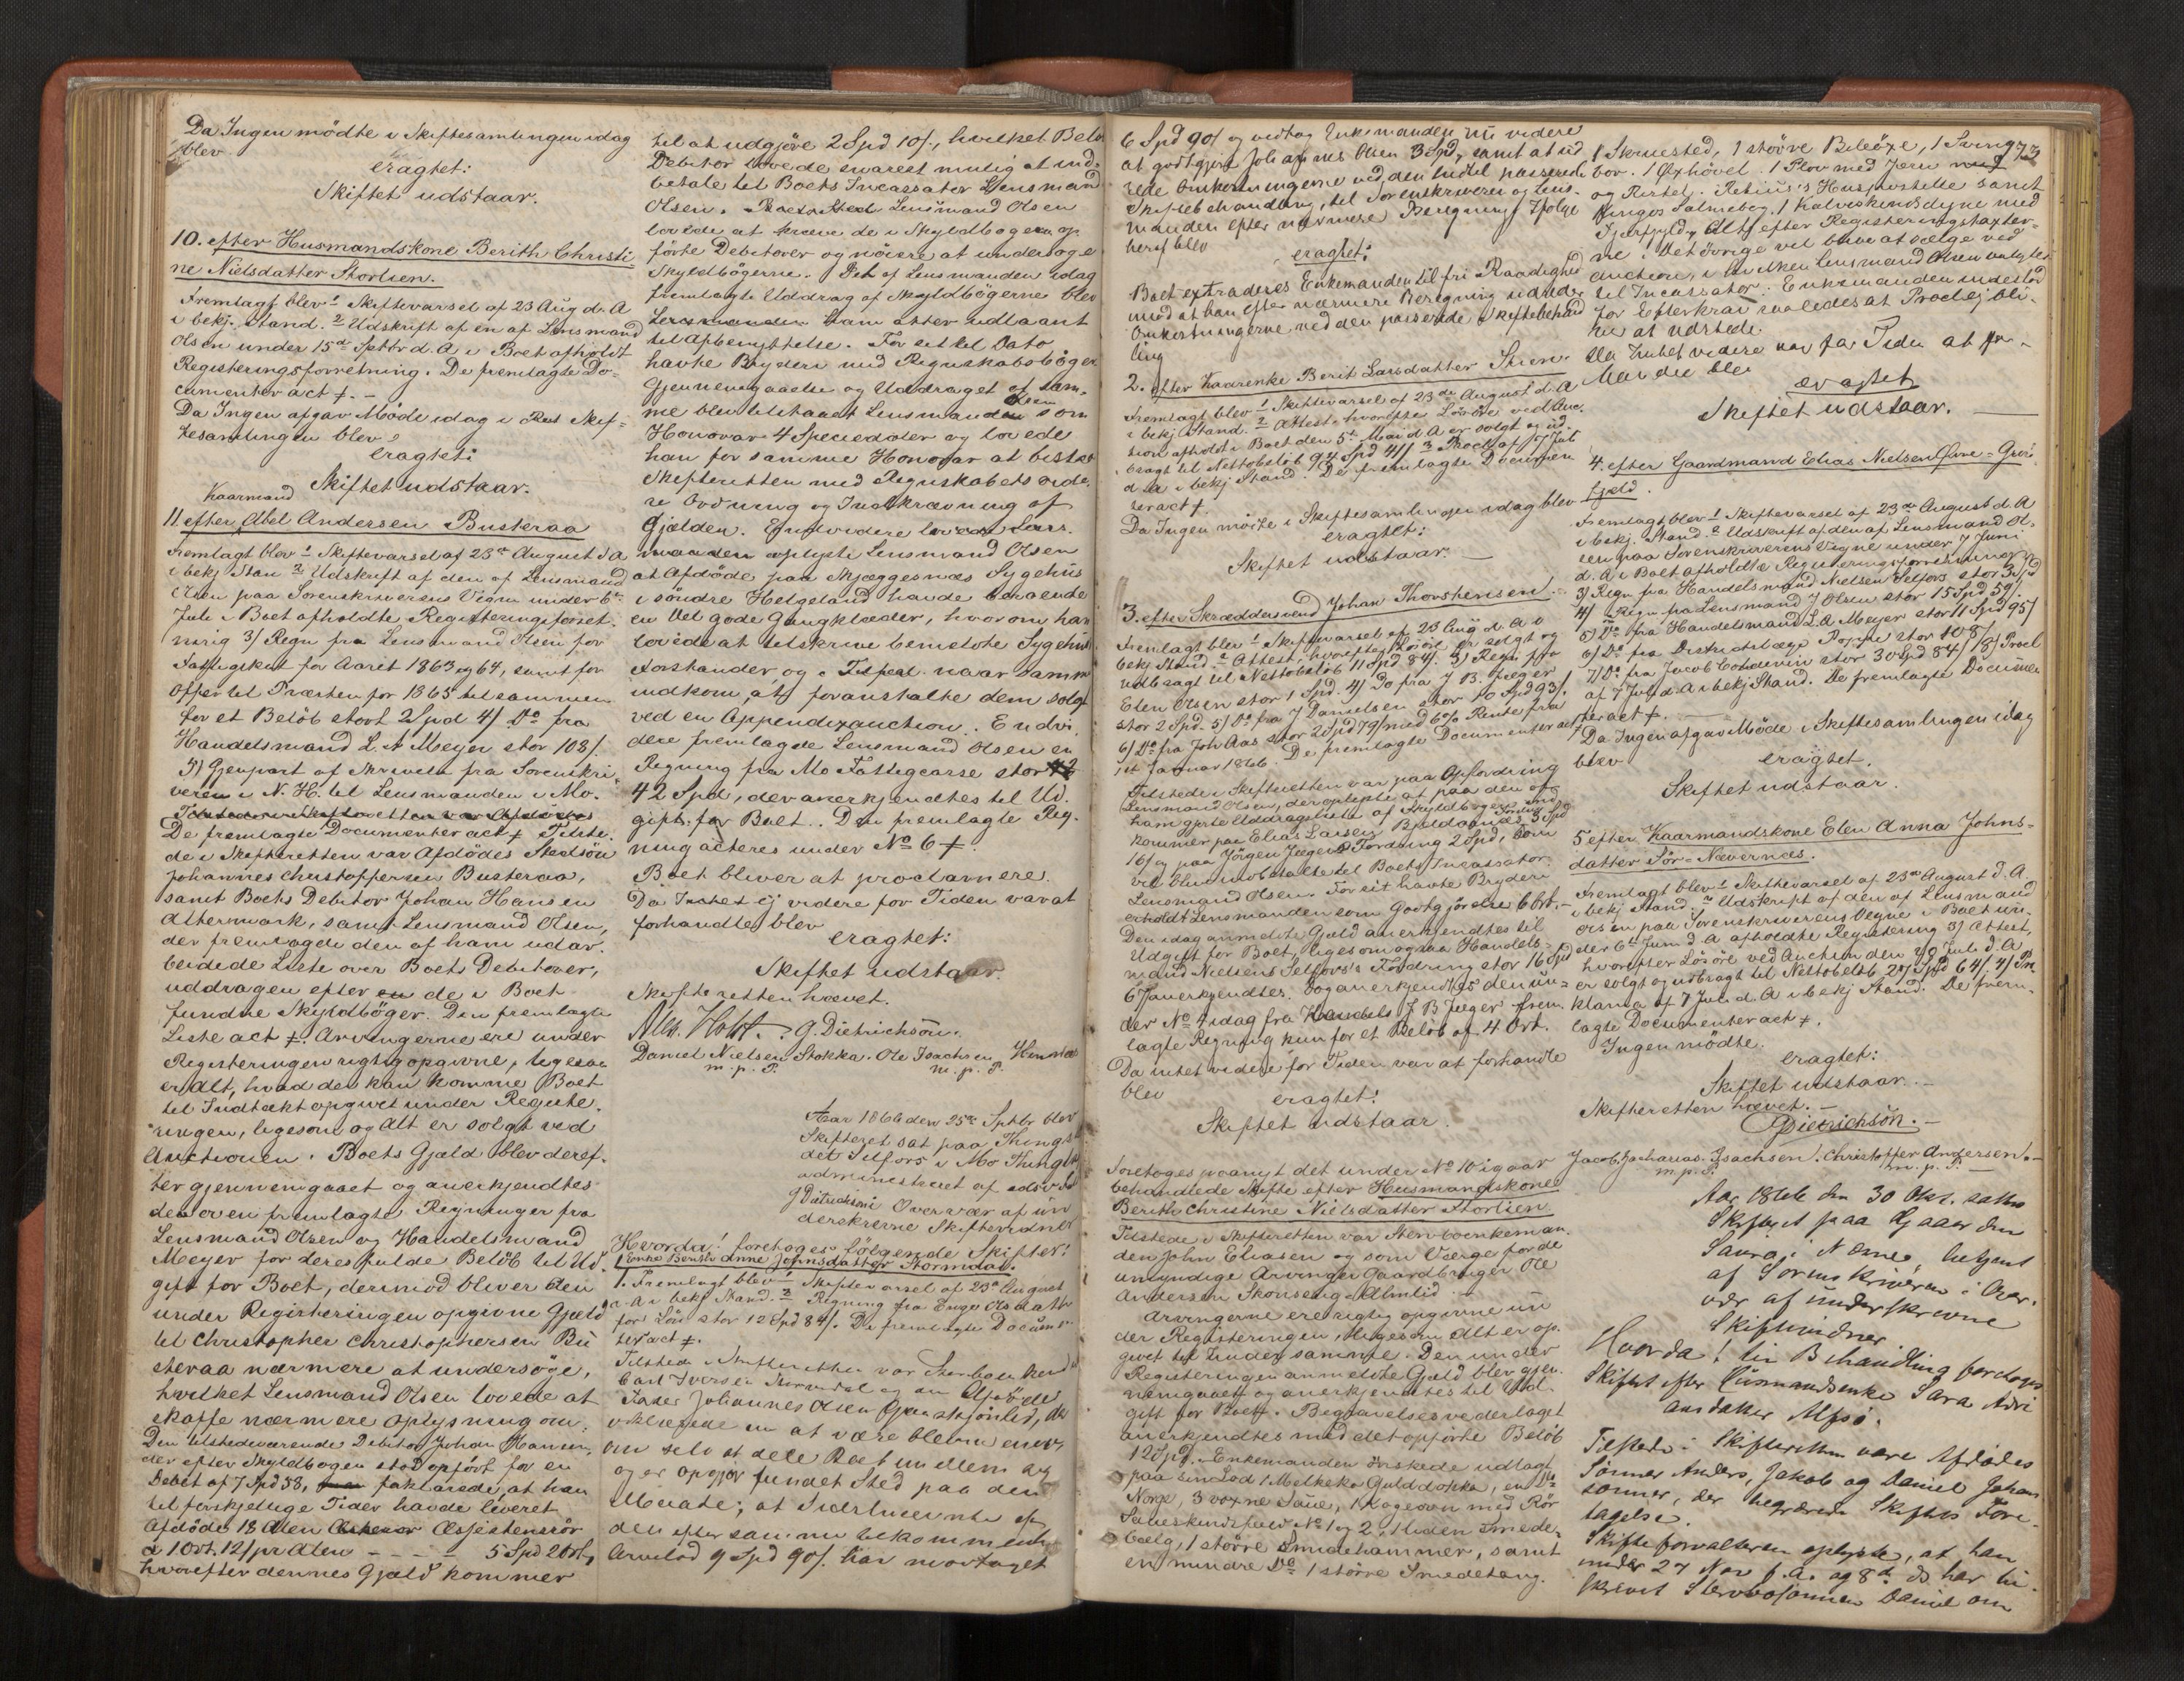 Da Ingen mödte i Skiftesamlingen idag
blev
eragtet:
Skiftet udstaar.
10. efter Husmandskone Berith Christi-
ne Nielsdatter Stortien.
Fremlagt blev 1 Skiftevarsel af 23 Aug d. A
i bekj. Stand. 2 Udskrift af en af Lensmand
Olsen under 15de Septbr d. A i Boet afholdt
Registeringsforretning. De fremlagte Do-
cumenter act ⨍. -
Da Ingen afgav Möde idag i Skif-
tesamlingen blev
eragtet:
Skiftet udstaar.
Kaarmand
11. efter Abel Andersen Busteraa
Fremlagt blev 1 Skiftevarsel af 23de August d A
i bekj Stan 2 Udskrift af den af Lensmand
Olsen paa Sorenskriverens Vegne under 6te
Juli i Boet afholdte Registeringsforret-
ning 3) Regn fra Lensmand Olsen for
Fattigskat for Aaret 1863 og 64, samt for
Offer til Præsten for 1865 tilsammen
for et Belöb stort 2 Spd 4/ Do fra
Handelsmand L. A Meyer stor 108/.
5) Gjenpart af Skrivelse fra Sorenskri-
veren i N. H. til Lensmanden i Mo.
De fremlagte Documenter act ⨍ Tilste-
de i Skifteretten var Afdödes Stedsön
Johannes Christoffersen Busteraa,
samt Boets Debitor Johan Hansen
Altermark, samt Lensmand Olsen,
der fremlagde den af ham udar-
beidede Liste over Boets Debitorer,
uddragen efter de i Boet
fundne Skyldböger. Den fremlagte
Liste act ⨍. Arvingerne ere under
Registeringen rigtig opgivne, ligesom
er Alt, hvad der kan komme Boet
til Indtækt opgivet under Registe-
ringen, ligesom og Alt er solgt ved
Auctionen. Boets Gjæld blev deref-
ter gjennemgaaet og anerkjendtes
den over en fremlagte Regninger fra
Lensmand Olsen og Handelsmand
Meyer for deres fulde Belöb til Ud-
gift for Boet, derimod bliver den
under Registeringen opgivne Gjæld
til Christopher Christophersen Bu-
steraa nærmere at undersöge,
hvilket Lensmand Olsen lovede at
skaffe nærmere Oplysning om.
Den tilstedeværende Debitor Johan Hansen,
der efter Skyldbogen stod opfört for en
Debet af 7 Spd 58, forklarede, at han
til forskjellige Tider havde leveret
Afdöde 18 Alen
a 1 Ort. 12/ pr Alen - - - - 5 Spd 2 Ort,
hvorefter dennes Gjæld kommer
til at udgjöre 2 Spd 10/., hvilket Belöb
Debitor lovede snarest mulig at ind-
betale til Boets Incassator Lensmand
Olsen. Lensmand Olsen
lovede at kræve de i Skyldbögerne op-
förte Debitorer og nöiere at undersöge
Skyldbögerne. Det af Lensmanden idag
fremlagte Uddrag af Skyldbögerne blev
ham atter udlaant
til Afbenyttelse. For sit til Dato
havte Bryderi med Regnskabsböger
Gjennemgaaelse og Uddraget af sam-
me blev tilstaaet Lensmand Olsen som
Honorar 4 Speciedaler og lovede
han for samme Honorar at bistaa
Skifteretten med Regnskabets vide-
re Ordning og Indkrævning af
Gjælden. Endvidere
oplyste Lensmand Olsen
at Afdöde paa Skjæggesnæs Sygehus
i söndre Helgeland havde beroende
en Del gode Gangklæder, hvorom han
lovede at tilskrive bemeldte Sygehus
Forstander, og i Tilfæld naar samme
indkom, at foranstalte dem solgt
ved en Appendixauction. Endvi-
dere fremlagde Lensmand Olsen en
Regning fra Mo Fattigcasse stor
42 Spd, der anerkjendtes til Ud-
gift for Boet. Den fremlagte Reg-
ning acteres under No 6 ⨍.
Boet bliver at proclamere.
Da Intet ej videre for Tiden var at
forhandle, blev
eragtet:
Skiftet udstaar.
Skifteretten hævet.
Alb. Holst. G. Dietrichson.
Daniel Nielsen Stokka. Ole Isachsen Hemnæs
m. p. P. m. p. P.
Aar 1866 den 25de Septbr blev
Skifteret sat paa Thingste-
det Selfors i Mo Thinglag
administreret af edsv
G Dietrichson Overvær af un-
derskrevne Skiftevidner
Hvorda! foretoges fölgende Skifter!
1. Enke Berith Anne Johnsdatter Stormdal.
1. Fremlagt blev 1 Skiftevarsel af 23de August
d. A i bekj Stand. 2 Regning fra Inger Olsdatter
for Lön stor 12 Spd 84/. De fremlagte Documen-
ter act ⨍.
Tilstede i Skifteretten var
Carl Iversen Stormdal og Afdödes
Fader Johannes Olsen, de
vedtoge at være bleven enige
om selv at dele Boet imellem sig
og er Opgjör fundet Sted paa den
Maade, at Sidstnævnte
den efter samme tilkommende
Arvelod 9 Spd 90/. har modtaget
6 Spd 90/ og vedtog Enkemanden nu videre
at godtgjöre Johannes Olsen 3 Spd, samt at ud-
rede Omkostningerne ved den hidtil passerede
Skiftebehandling, til Sorenskriveren og Lens-
manden efter nærmere Beregning. Ifölge
heraf blev
eragtet:
Boet extraderes Enkemanden til fri Raadighed
imod at han efter nærmere Beregning udreder
Omkostningerne ved den passerede Skiftebehand-
ling
2. efter Kaarenke Berit Larsdatter
Fremlagt blev 1 Skiftevarsel af 23de August d. A
i bekj Stand. 2 Attest, hvorefter Lösöre ved Auc-
tion afholdt i Boet den 5te Mai d. A er solgt og ud-
bragt til Nettobelöb 94 Spd 41/ 3 Procl af 7 Juli
d. A i bekj Stand. De fremlagte Documen-
ter act ⨍.
Da Ingen mödte i Skiftesamlingen idag blev
eragtet:
Skiftet udstaar. -
3. efter Skræddersvend Johan Thorstensen.
Fremlagt blev 1 Skiftevarsel af 23 Aug d. A i
bekj Stand. 2 Attest, hvorefter Lösöre er solgt og
udbragt til Nettobelöb 11 Spd 84/. 3) Regn fra
Elen Olsen stor 1 Spd. 4) Do fra J B. Jæger
stor 2 Spd. 5) Do fra J Danielsen stor 10 Spd 93/.
6) Do fra Joh Aas stor 2 Spd 79/ med 6% Rente fra
14 Januar 1866. De fremlagte Documenter act ⨍
Tilstede i Skifteretten var paa Opfordring
Lensmand Olsen, der oplyste at paa den af
ham gjorte Uddragsliste af Skyldbogen ind-
kommer paa Elias Larsens Fordring 3 Spd
16/ og paa Jörgen Jægers Fordring 2 Spd, som
vil blive indbetalt til Boets Incassator
Lensmand Olsen. For sit havte Bryderi
erholdt Lensmanden som Godtgjörelse 6 Ort. -
Den idag anmeldte Gjæld anerkjendtes til
Udgift for Boet, ligesom ogsaa Handels-
mand Nielsens Selfors's Fordring stor 16 Spd
6/ anerkjendtes. Dog anerkjendtes den un-
der No 4 idag fra Handels J B Jæger frem-
lagte Regning kun for et Belöb af 4 Ort.
Da intet videre for Tiden var at forhandle
blev
eragtet:
Skiftet udstaar.
Foretoges paanyt det under No 10 igaar
behandlede Skifte efter Husmandskone
Berith Christine Nielsdatter Stortien
Tilstede i Skifteretten var Stervboenkeman-
den John Eliasen og som Værge for de
umyndige Arvinger Gaardbruger Ole
Andersen Skonseng-Almlid
Arvingerne ere rigtig opgivne un-
der Registeringen, ligesom Alt er op-
givet til under samme. Den under
Registeringen anmeldte Gjæld blev gjen-
nemgaaet og anerkjendtes til Ud-
gift for Boet. Begravelsesvederlaget
anerkjendtes med det opförte Belöb
12 Spd. Enkemanden önskede udlagt
paa sin Lod 1 Melkeko Gulddokka, en Do
Norge, 3 voxne Sauer, 1 Kogeovn med Rör
Saueskindsfeld No 1 og 2, 1 liden Smede-
bælg, 1 större Smedehammer, samt
en mindre Do 1 större Smedetang.
73
1 Skruested, 1 större Bileöxe, 1 Sving-
bor. 1 Öxhövel. 1 Plov med Jern
og Ristel. Husportille samt
Kingos Salmebog. 1 Kalveskindsdyne med
Fjærfyld, Alt efter Registeringstaxter-
ne. Det övrige vil blive at sælge ved
Auction, i hvilken Lensmand Olsen valgtes
til Incassator. Enkemanden indestod
for Efterkrav saaledes at Proclej bli-
ver at udstede.
Da Intet videre var for Tiden at for-
handle blev
eragtet
Skiftet udstaar.
4. efter Gaardmand Elias Nielsen Övre-Grön-
fjeld.
Fremlagt blev 1 Skiftevarsel af 23de August d. A
i bekj. Stand. 2 Udskrift af den af Lensmand Ol-
sen paa Sorenskriverens Vegne under 7 Juni
d. A i Boet afholdte Registeringsforretning
3) Regn fra Handelsmand Nielsen Selfors stor 3 Spd
4) Regn fra Lensmand J Olsen stor 15 Spd 59/.
5) Do fra Handelsmand L. A Meyer stor 11 Spd 95/
6) Do fra Districtslæge Poppe stor 108/
7) Do fra Jacob Coldevin stor 30 Spd 84/ 8) Procl
af 7 Juli d. A i bekj Stand. De fremlagte Documen-
ter act ⨍.
Da Ingen afgav Möde i Skiftesamlingen idag
blev
eragtet.
Skiftet udstaar.
5 efter Kaarmandskone Elen Anna Johns-
datter Sör-Nævernæs.
Fremlagt blev 1 Skiftevarsel af 23de August d. A.
i bekj Stand. 2 Udskrift af den af Lensmand
Olsen paa Sorenskriverens Vegne i Boet un-
der 6te Juni d. A afholdte Registering 3) Attest,
hvorefter Lösöre ved Auction den 29 Juli d. A
er solgt og udbragt til Nettobelöb 27 Spd 64/. 4) Pro-
klama af 7 Juli d. A i bekj Stand. De frem-
lagte Documenter act ⨍.
Ingen mödte.
eragtet:
Skiftet udstaar. -
Skifteretten hævet. -
G Dietrichson. -
Jacob Zacharias Isachsen. Christoffer Andersen. -
m. p. P. m. p. P. -
Aar 1866 den 30 Okt. sattes
Skifteret paa Gaarden
Saura i Næsne betjent
af Sorenskriveren i Over-
vær af underskrevne
Skiftevidner
Hvorda! til Behandling foretoges
Skiftet efter Husmandsenke Sara Adri-
ansdatter Alfsö.
Tilstede i Skifteretten vare Afdödes
Sönner Anders, Jakob og Daniel Johan
sönner, der begjærede Skiftets Fore-
tagelse.
Skifteforvalteren oplyste, at han
under 27 Nov f. A. og 8de ds har til-
skrevet Stervbosönnen Daniel om